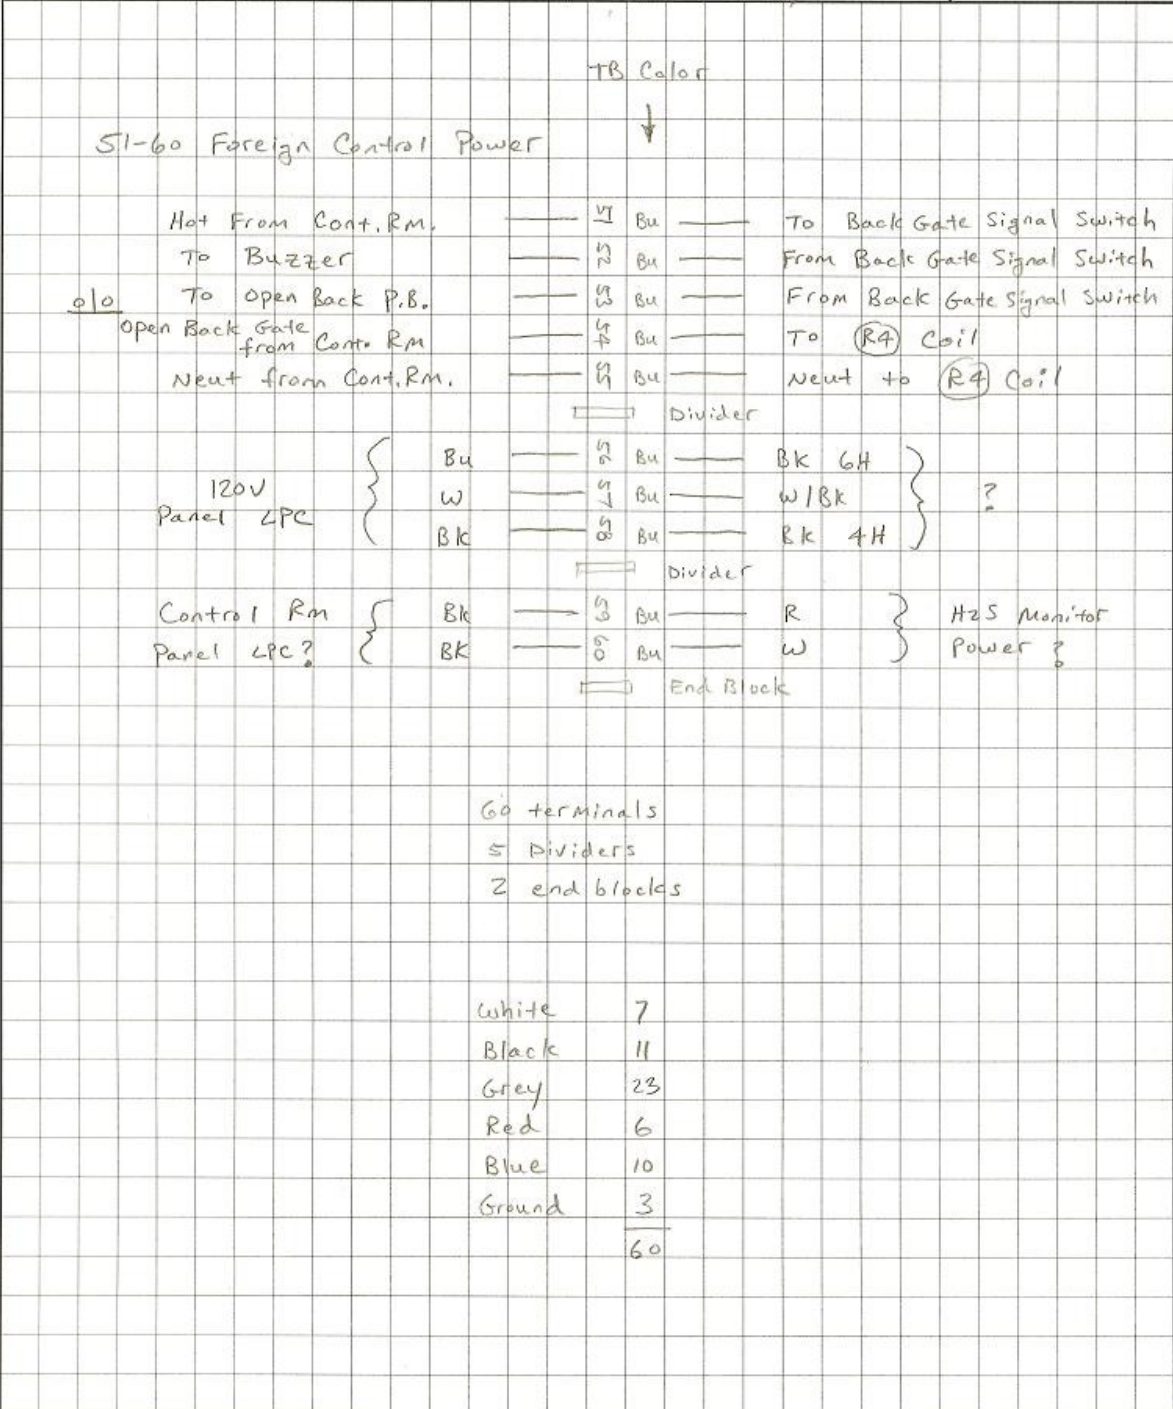 TB Color
51-60 Foreign Control Power
Hot From Cont. Rm. 51 Bu To Back Gate Signal Switch
To Buzzer 52 Bu From Back Gate Signal Switch
To Open Back P.B. 53 Bu From Back Gate Signal Switch
Open Back Gate
from Cont. Rm 54 Bu To R4 Coil
Neut from Cont. Rm. 55 Bu Neut to R4 Coil
Divider
Bu 56 Bu BK 6H
120V
Panel LPC
W 57 Bu W/BK ?
BK 58 Bu BK 4H
Divider
Control Rm BK 59 Bu R H2S Monitor
Panel LPC? BK 60 Bu W Power ?
End Block
60 terminals
5 Dividers
2 end blocks
White 7
Black 11
Grey 23
Red 6
Blue 10
Ground 3
60